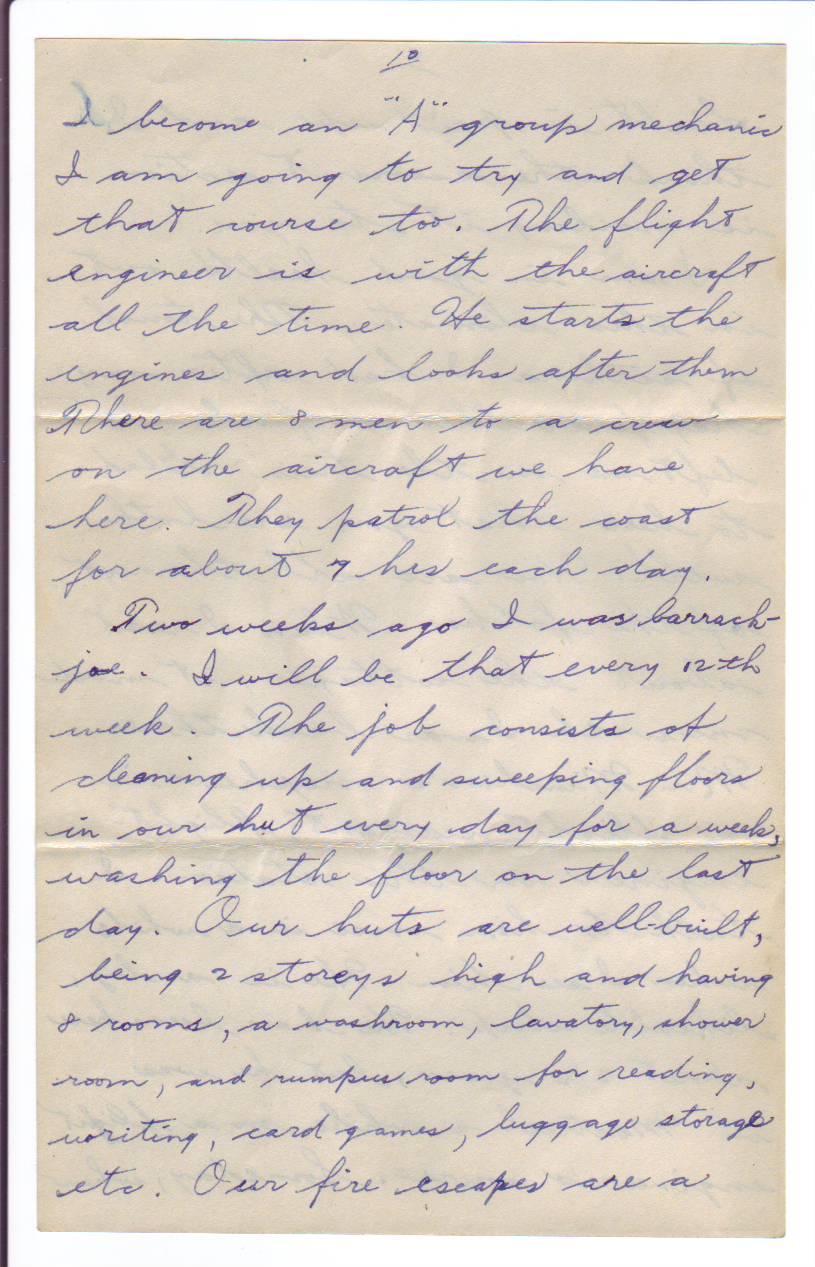 10
I become an "A" group mechanic
I am going to try and get
that course too. The flight
engineer is with the aircraft
all the time. He starts the
engines and looks after them
There are 8 men to a crew
on the aircraft we have
here. They patrol the coast
for about 7 hrs each day.
Two weeks ago I was barrack-
joe. I will be that every 12th
week. The job consists of
cleaning up and sweeping floors
in our hut every day for a week,
washing the floor on the last
day. Our huts are well-built,
being 2 storeys high and having
8 rooms, a washroom, lavatory, shower
room, and rumpus room for reading,
writing, card games, luggage storage
etc. Our fire escapes are a